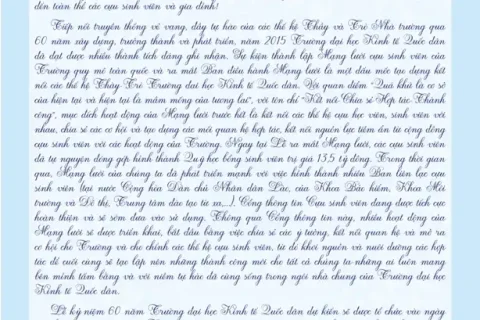 đến toàn thể các cựu sinh viên và gia đình!
Tiếp nối truyền thống vẻ vang, đầy tự hào của các thế hệ Thầy và Trò Nhà trường qua
60 năm xây dựng, trưởng thành và phát triển, năm 2015 Trường đại học Kinh tế Quốc dân
đã đạt được nhiều thành tích đáng ghi nhận. Sự kiện thành lập Mạng lưới cựu sinh viên của
Trường quy mô toàn quốc và ra mắt Ban điều hành Mạng lưới là một dấu mốc tạo dựng kết
nối các thế hệ Thầy Trò Trường đại học Kinh tế Quốc dân. Với quan điểm "Quá khứ là cơ sở
của hiện tại và hiện tại là mầm mống của tương lai", với tôn chỉ "Kết nối Chia sẻ Hợp tác Thành
công", mục đích hoạt động của Mạng lưới trước hết là kết nối các thế hệ cựu học viên, sinh viên với
nhau, chia sẻ các cơ hội và tạo dựng các mối quan hệ hợp tác, kết nối nguồn lực tiềm ẩn từ cộng đồng
cựu sinh viên với các hoạt động của Trường. Ngay tại Lễ ra mắt Mạng lưới, các cựu sinh viên
đã tự nguyện đóng góp hình thành Quỹ học bổng sinh viên trị giá 13,5 tỷ đồng. Trong thời gian
qua, Mạng lưới của chúng ta đã phát triển mạnh với việc hình thành nhiều Ban liên lạc cựu
sinh viên (tại nước Cộng hòa Dân chủ Nhân dân Lào, của Khoa Bảo hiểm, Khoa Môi
trường và Đô thị, Trung tâm đào tạo từ xa,...). Cổng thông tin Cựu sinh viên đang được tích cực
hoàn thiện và sẽ sớm đưa vào sử dụng. Thông qua Cổng thông tin này, nhiều hoạt động của
Mạng lưới sẽ được triển khai, bắt đầu bằng việc chia sẻ các ý tưởng, kết nối quan hệ và mở ra
cơ hội cho Trường và cho chính các thế hệ cựu sinh viên, từ đó khơi nguồn và nuôi dưỡng các hợp
tác để cuối cùng sẽ tạo lập nên những thành công mới cho tất cả chúng ta những ai luôn mang
bên mình tấm bằng và với niềm tự hào đã cùng sống trong ngôi nhà chung của Trường đại học
Kinh tế Quốc dân.
Lễ kỷ niệm 60 năm Trường đại học Kinh tế Quốc dân dự kiến sẽ được tổ chức vào ngày